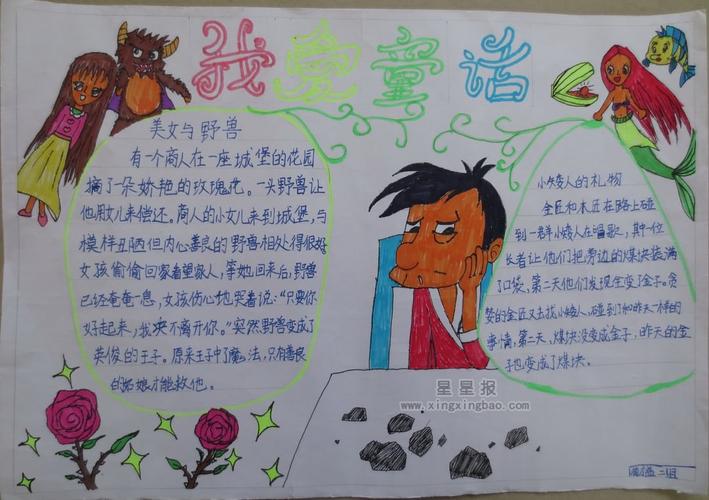 我爱童话
美女与野兽
有一个商人在一座城堡的花园
摘了一朵娇艳的玫瑰花。一头野兽让
他用女儿来偿还。商人的小女儿来到城堡,与
模样丑陋但内心善良的野兽相处得很好
女孩偷偷回家看望家人,等她回来后,野兽
已经奄奄一息,女孩伤心地哭着说:"只要你
好起来,我决不离开你。"突然野兽变成了
英俊的王子。原来王子中了魔法,只有善良
的姑娘才能救他。
小矮人的礼物
金匠和木匠在路上碰
到一群小矮人在唱歌,其中一位
长者让他们把旁边的煤块装满
了口袋,第二天他们发现全变了金子。贪
婪的金匠又去找小矮人,碰到了和昨天一样的
事情,第二天,煤块没变成金子,昨天的金
子也变成了煤块。
星星报
www.xingxingbao.com
二组